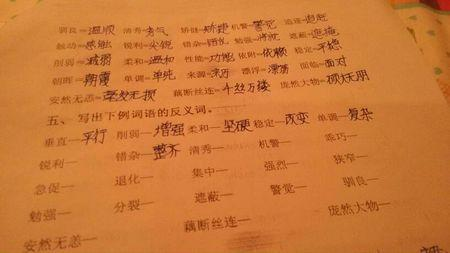 驯良=温顺 清秀=秀气 矫健=矫捷 机警=警觉 追逐=追赶
触动=感触 锐利=尖锐 错杂= 勉强= 遮蔽=遮掩
削弱=减弱 柔和=温和 性能=功能 依附=依赖 稳定=平稳
朝晖=朝霞 单调=单纯 来源=来历 漂浮=漂荡 面临=面对
安然无恙=毫发无损 藕断丝连=千丝万缕 庞然大物=
五、写出下例词语的反义词。
垂直—平行 削弱—增强 柔和—坚硬 稳定—改变 单调—复杂
锐利— 错杂—整齐 清秀— 机警— 乖巧—
急促— 退化— 集中— 强烈— 狭窄—
勉强— 分裂— 遮蔽— 警觉— 驯良—
安然无恙— 藕断丝连— 庞然大物—